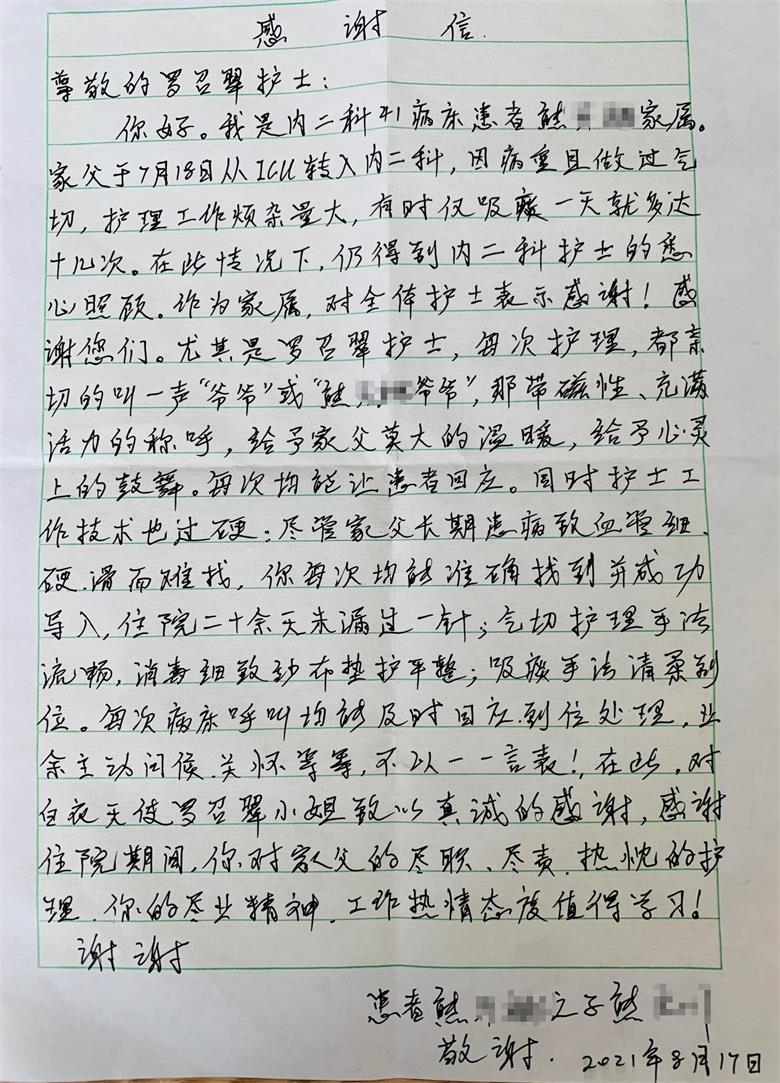 感谢信.
尊敬的罗召翠护士：
你好。我是内二科41病床患者熊 家属。
家父于7月18日从ICU转入内二科，因病重且做过气
切，护理工作烦杂量大，有时仅吸痰一天就多达
十几次。在此情况下，仍得到内二科护士的悉
心照顾。作为家属，对全体护士表示感谢！感
谢您们。尤其是罗召翠护士，每次护理，都亲
切的叫一声“爷爷”或“熊 爷爷”，那带磁性、充满
活力的称呼，给予家父莫大的温暖，给予心灵
上的鼓舞。每次均能让患者回应。同时护士工
作技术也过硬：尽管家父长期患病致血管细、
硬、滑而难找，你每次均能准确找到并成功
导入，住院二十余天未漏过一针；气切护理手法
流畅，消毒细致纱布垫护平整；吸痰手法清柔到
位。每次病床呼叫均能及时回应、到位处理，业
余主动问候、关怀等等，不以一一言表！在此，对
白夜天使罗召翠小姐致以真诚的感谢，感谢
住院期间，你对家父的尽职、尽责、热忱的护
理、你的尽业精神、工作热情态度值得学习！
谢谢
患者熊 之子熊
敬谢. 2021年8月17日